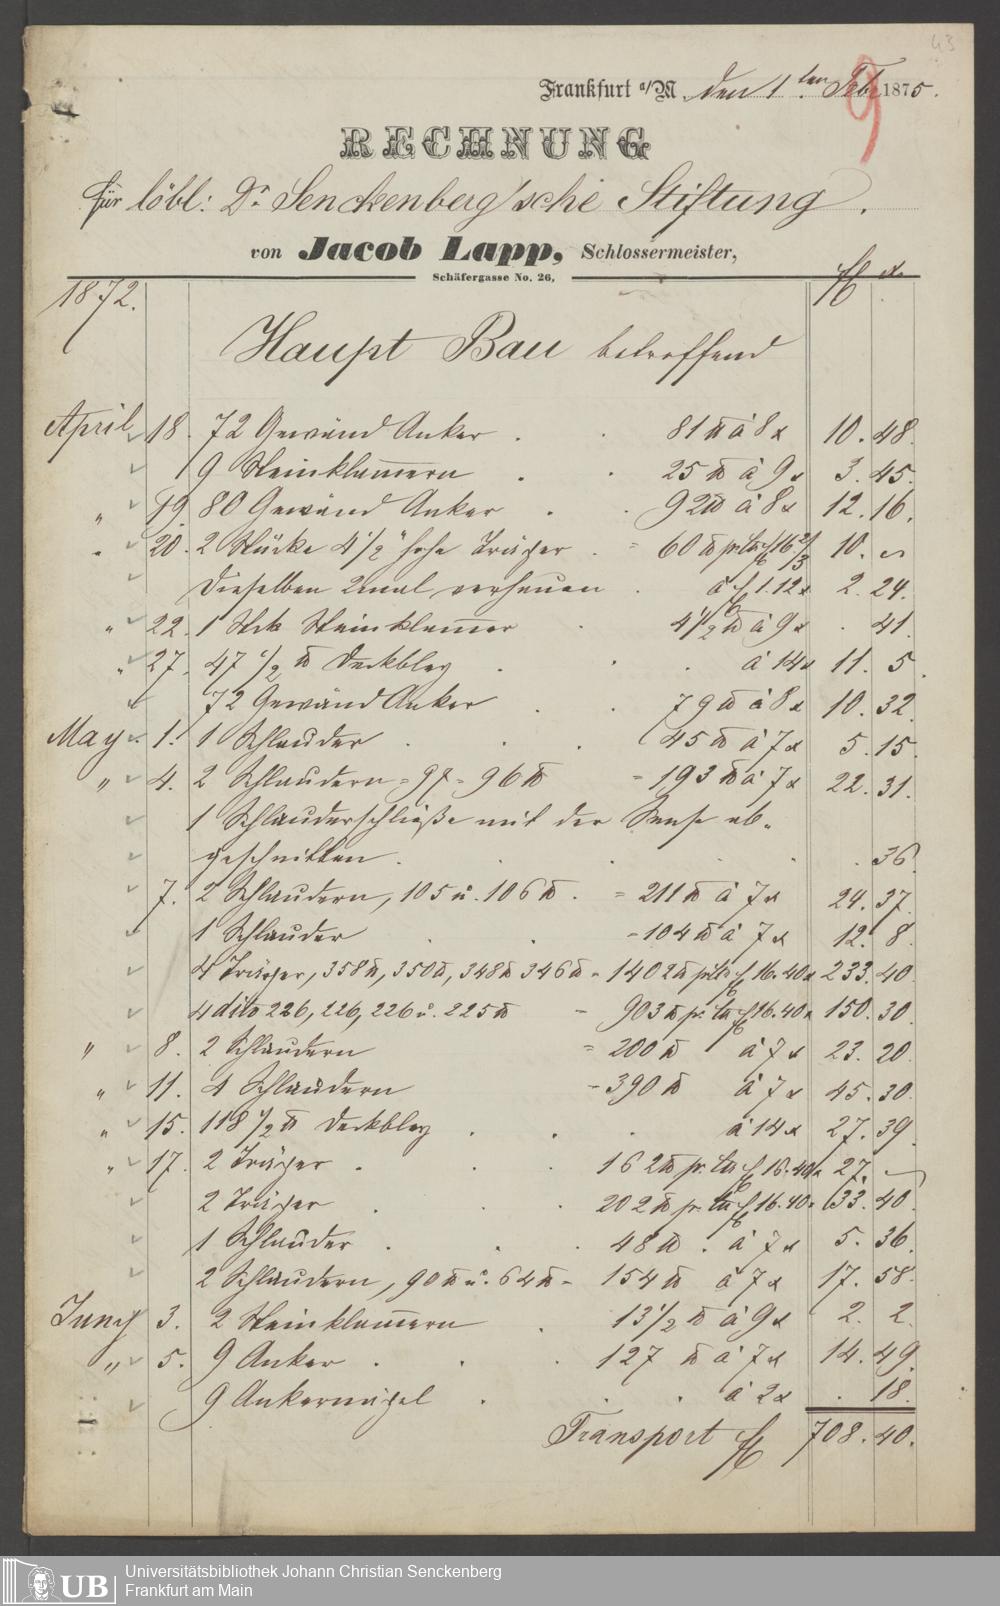 43
9
Frankfurt a/M. den 1ten Febr 1875.
RECHNUNG
für löbl: Dr. Senckenberg'sche Stiftung.
von Jacob Lapp, Schlossermeister,
Schäfergasse No. 26,
1872. fl x.
Haupt Bau betreffend
April 18. 72 Gewänd Anker . . 81 ℔ à 8 x 10. 48.
19 Steinklam̄ern . . 25 ℔ à 9 x 3. 45.
" 19. 80 Gewänd Anker . . 92 ℔ à 8 x 12. 16.
" 20. 2 Stücke 4 1/2" hohe Träger . = 60 ℔ pr. Ctr fl 16 2/3 10. „
Dieselben 2mal verhauen . à fl 1.12 x 2. 24.
" 22. 1 Stck Steinklam̄er . 4 1/2 ℔ à 9 x . 41.
" 27. 47 1/2 ℔ Deckbley . . . à 14 x 11. 5.
72 Gewänd Anker . . 79 ℔ à 8 x 10. 32.
May 1. 1 Schlauder . . . 45 ℔ à 7 x 5. 15.
" 4. 2 Schlaudern = 97 = 96 ℔ = 193 ℔ à 7 x 22. 31.
1 Schlauderschließe mit der Sense ab-
geschnitten . . . . . . 36.
7. 2 Schlaudern, 105 u. 106 ℔ . = 211 ℔ à 7 x 24. 37.
1 Schlauder . . = 104 ℔ à 7 x 12. 8.
4 Träger, 358 ℔, 350 ℔, 348 ℔ 346 ℔ = 1402 ℔ pr. Ctr fl 16.40 x 233. 40.
4 dito 226, 226, 226 u. 225 ℔ = 903 ℔ pr. Ctr fl 16.40 x 150. 30.
" 8. 2 Schlaudern = 200 ℔ à 7 x 23. 20.
" 11. 4 Schlaudern = 390 ℔ à 7 x 45. 30.
" 15. 118 1/2 ℔ Deckbley . . . à 14 x 27. 39.
" 17. 2 Träger . . . 162 ℔ pr. Ctr fl 16.40 x 27. „
2 Träger . . 202 ℔ pr. Ctr fl 16.40 x 33. 40.
1 Schlauder . . . 48 ℔ . à 7 x 5. 36.
2 Schlaudern, 90 ℔ u. 64 ℔ = 154 ℔ à 7 x 17. 58.
Juny 3. 2 Steinklam̄ern . 13 1/2 ℔ à 9 x 2. 2.
" 5. 9 Anker . . . 127 ℔ à 7 x 14. 49.
9 Ankernägel . . . à 2 x . 18.
Transport fl 708. 40.
UB
Universitätsbibliothek Johann Christian Senckenberg
Frankfurt am Main